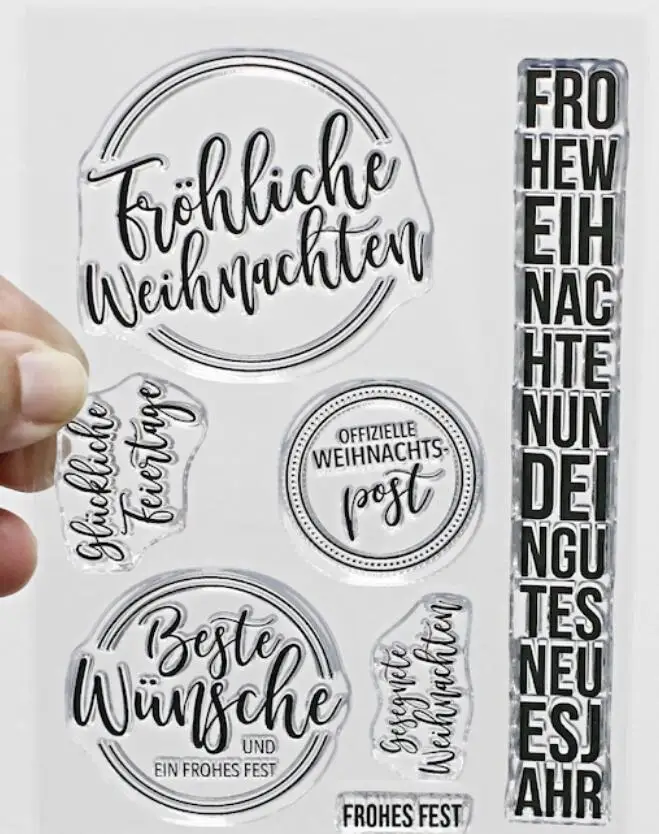 Fröhliche
Weihnachten
Glückliche
Feiertage
OFFIZIELLE
WEIHNACHTS-
post
Beste
Wünsche
UND
EIN FROHES FEST
Gesegnete
Weihnachten
FROHES FEST
FRO
HEW
EIH
NAC
HTE
NUN
DEI
NGU
TES
NEU
ESJ
AHR